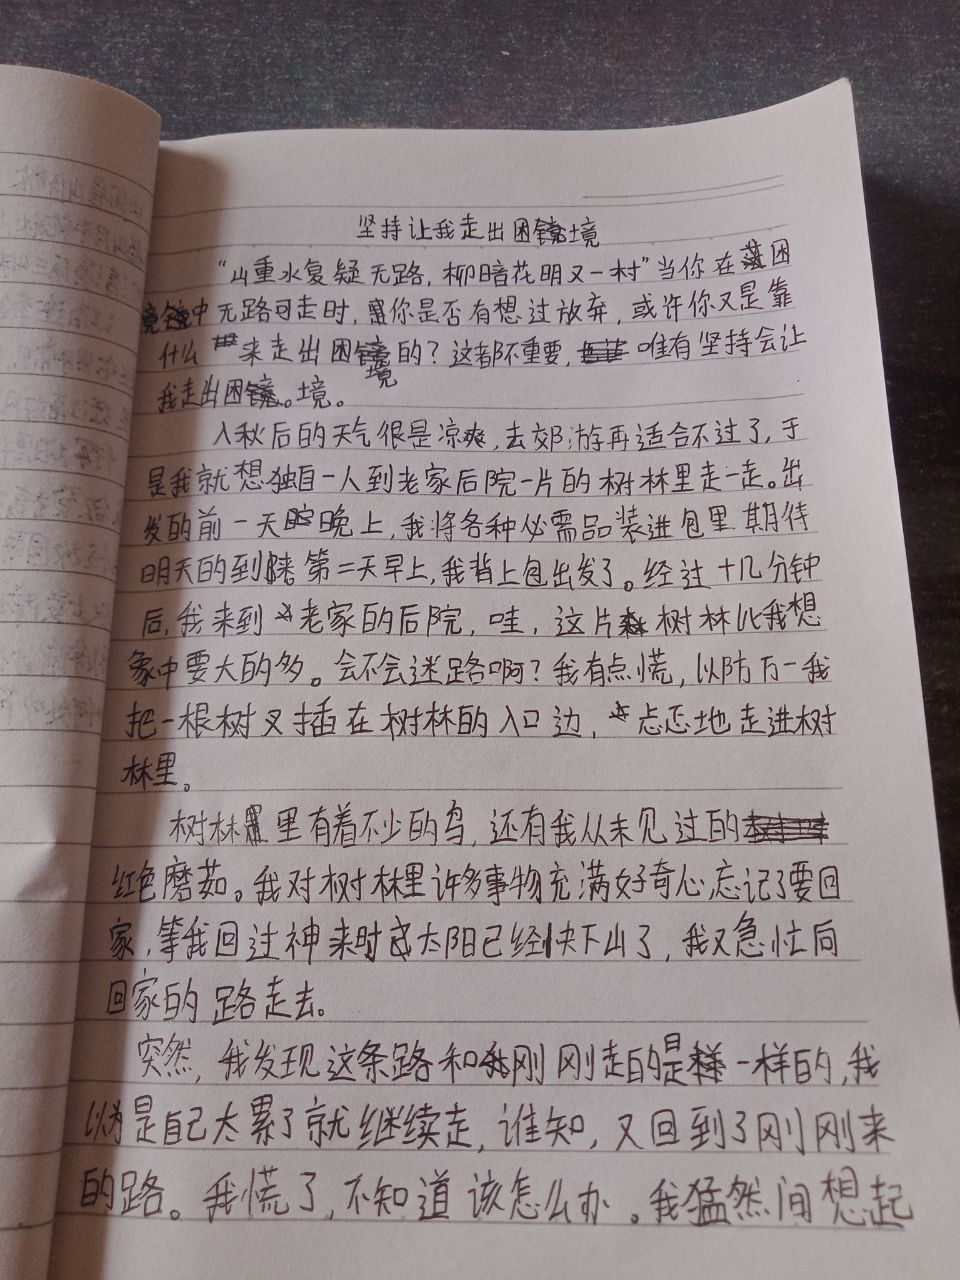 坚持让我走出困境
“山重水复疑无路，柳暗花明又一村”当你在困
境中无路可走时，你是否有想过放弃，或许你又是靠
什么来走出困境的？这都不重要，唯有坚持会让
我走出困境。
入秋后的天气很是凉爽，去郊游再适合不过了，于
是我就想独自一人到老家后院一片的树林里走一走。出
发的前一天晚上，我将各种必需品装进包里期待
明天的到来第二天早上，我背上包出发了。经过十几分钟
后，我来到老家的后院，哇，这片树林比我想
象中要大的多。会不会迷路啊？我有点慌，以防万一我
把一根树叉插在树林的入口边，忐忑地走进树
林里。
树林里有着不少的鸟，还有我从未见过的
红色磨茹。我对树林里许多事物充满好奇心，忘记了要回
家，等我回过神来时太阳已经快下山了，我又急忙向
回家的路走去。
突然，我发现这条路和刚刚走的是一样的，我
以为是自己太累了就继续走，谁知，又回到了刚刚来
的路。我慌了，不知道该怎么办。我猛然间想起